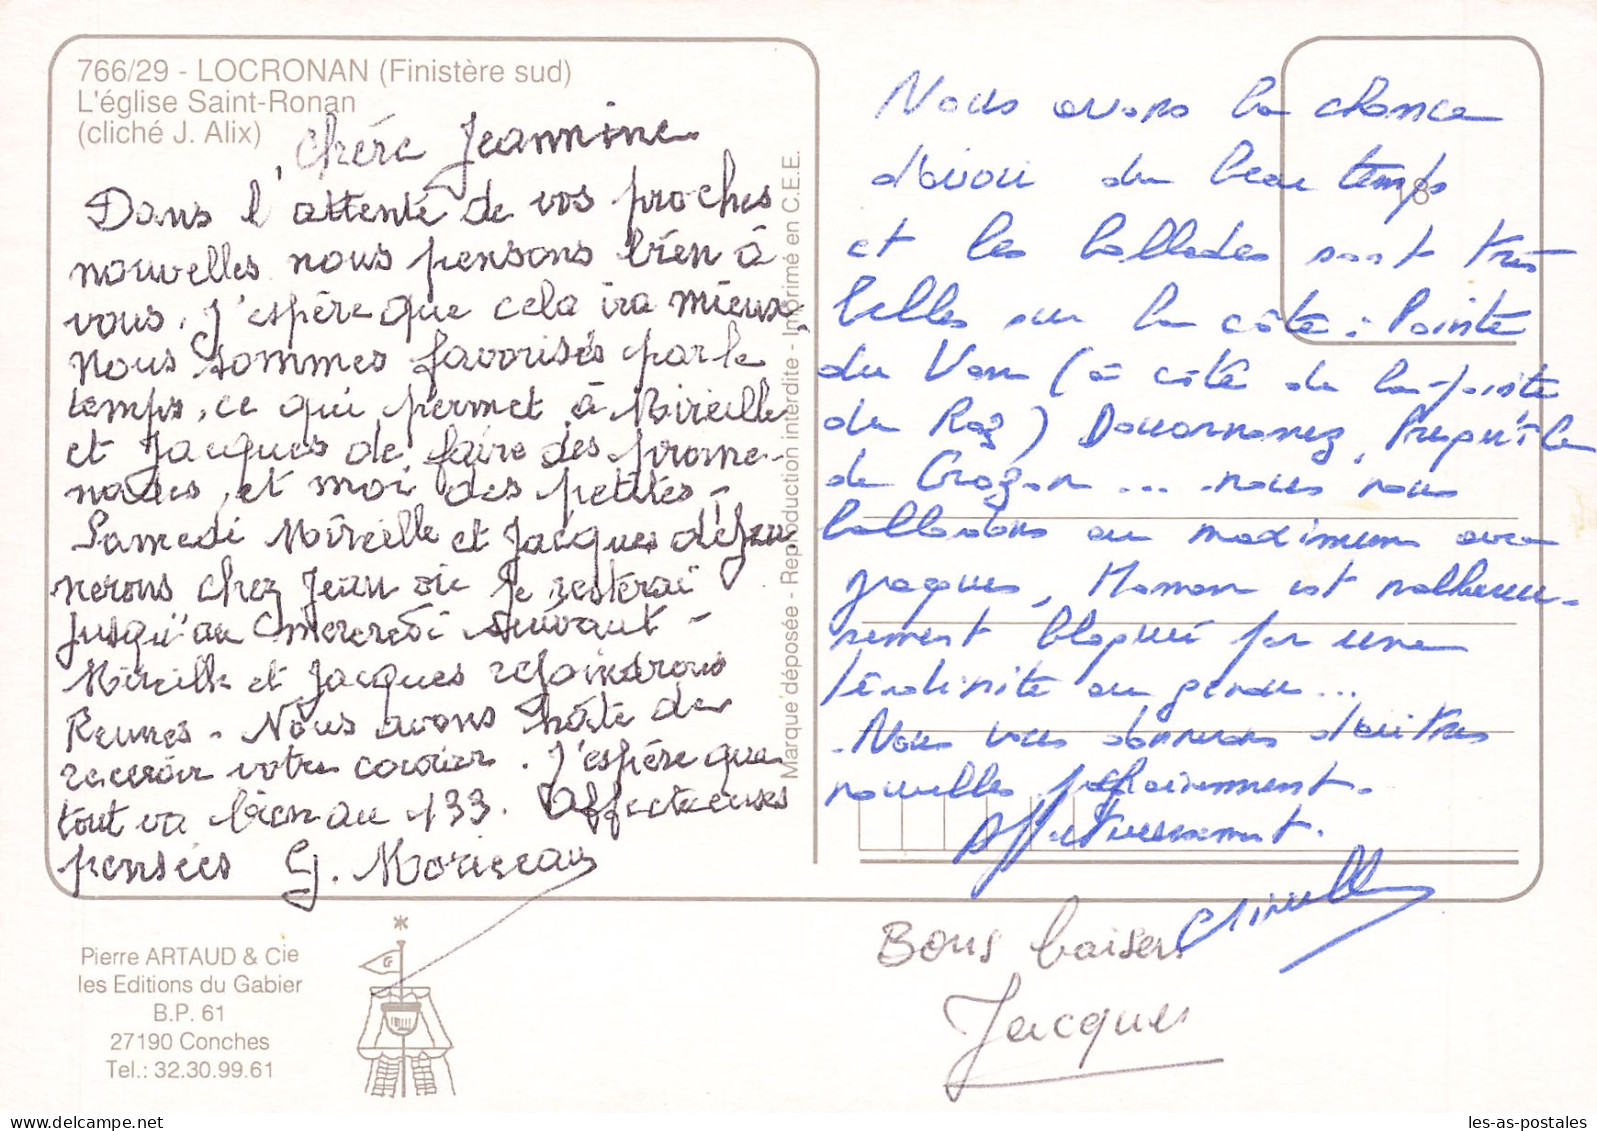 766/29 - LOCRONAN (Finistère sud)
L'église Saint-Ronan
(cliché J. Alix)
Chére Jeannine
Dans l'attente de vos proches
nouvelles nous pensons bien à
vous. J'espère que cela ira mieux.
Nous sommes favorisés par le
temps, ce qui permet à Mireille
et Jacques de faire des prome-
nades, et moi des petites -
Samedi Mireille et Jacques déjeu
nerons chez Jean où je resterai
jusqu'au mercredi suivant -
Mireille et Jacques rejoindrons
Rennes - Nous avons hâte de
recevoir votre courier. J'espère que
tout va bien au 133. Affectueuses
pensées G. Moriceau
Marque déposée - Reproduction interdite - Imprimé en C.E.E.
Nous avons la chance
d'avoir du beau temps
18
et les ballades sont très
belles sur la côte : Pointe
du Van (à côté de la pointe
du Raz) Douarnenez, Presqu'île
de Crozon ... nous nous
balladons au maximum avec
Jacques, Maman est malheureu-
sement bloquée par une
tendinite au genou...
Nous vous donnerons d'autres
nouvelles prochainement.
Affectueusement.
Mireille
Bons baisers
Jacques
Pierre ARTAUD & Cie
les Editions du Gabier
B.P. 61
27190 Conches
Tel.: 32.30.99.61
les-as-postales